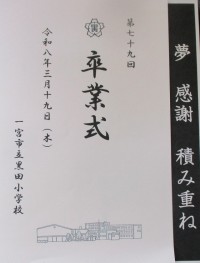 夢 感謝 積み重ね
第七十九回
卒業式
令和八年三月十九日（木）
一宮市立黒田小学校